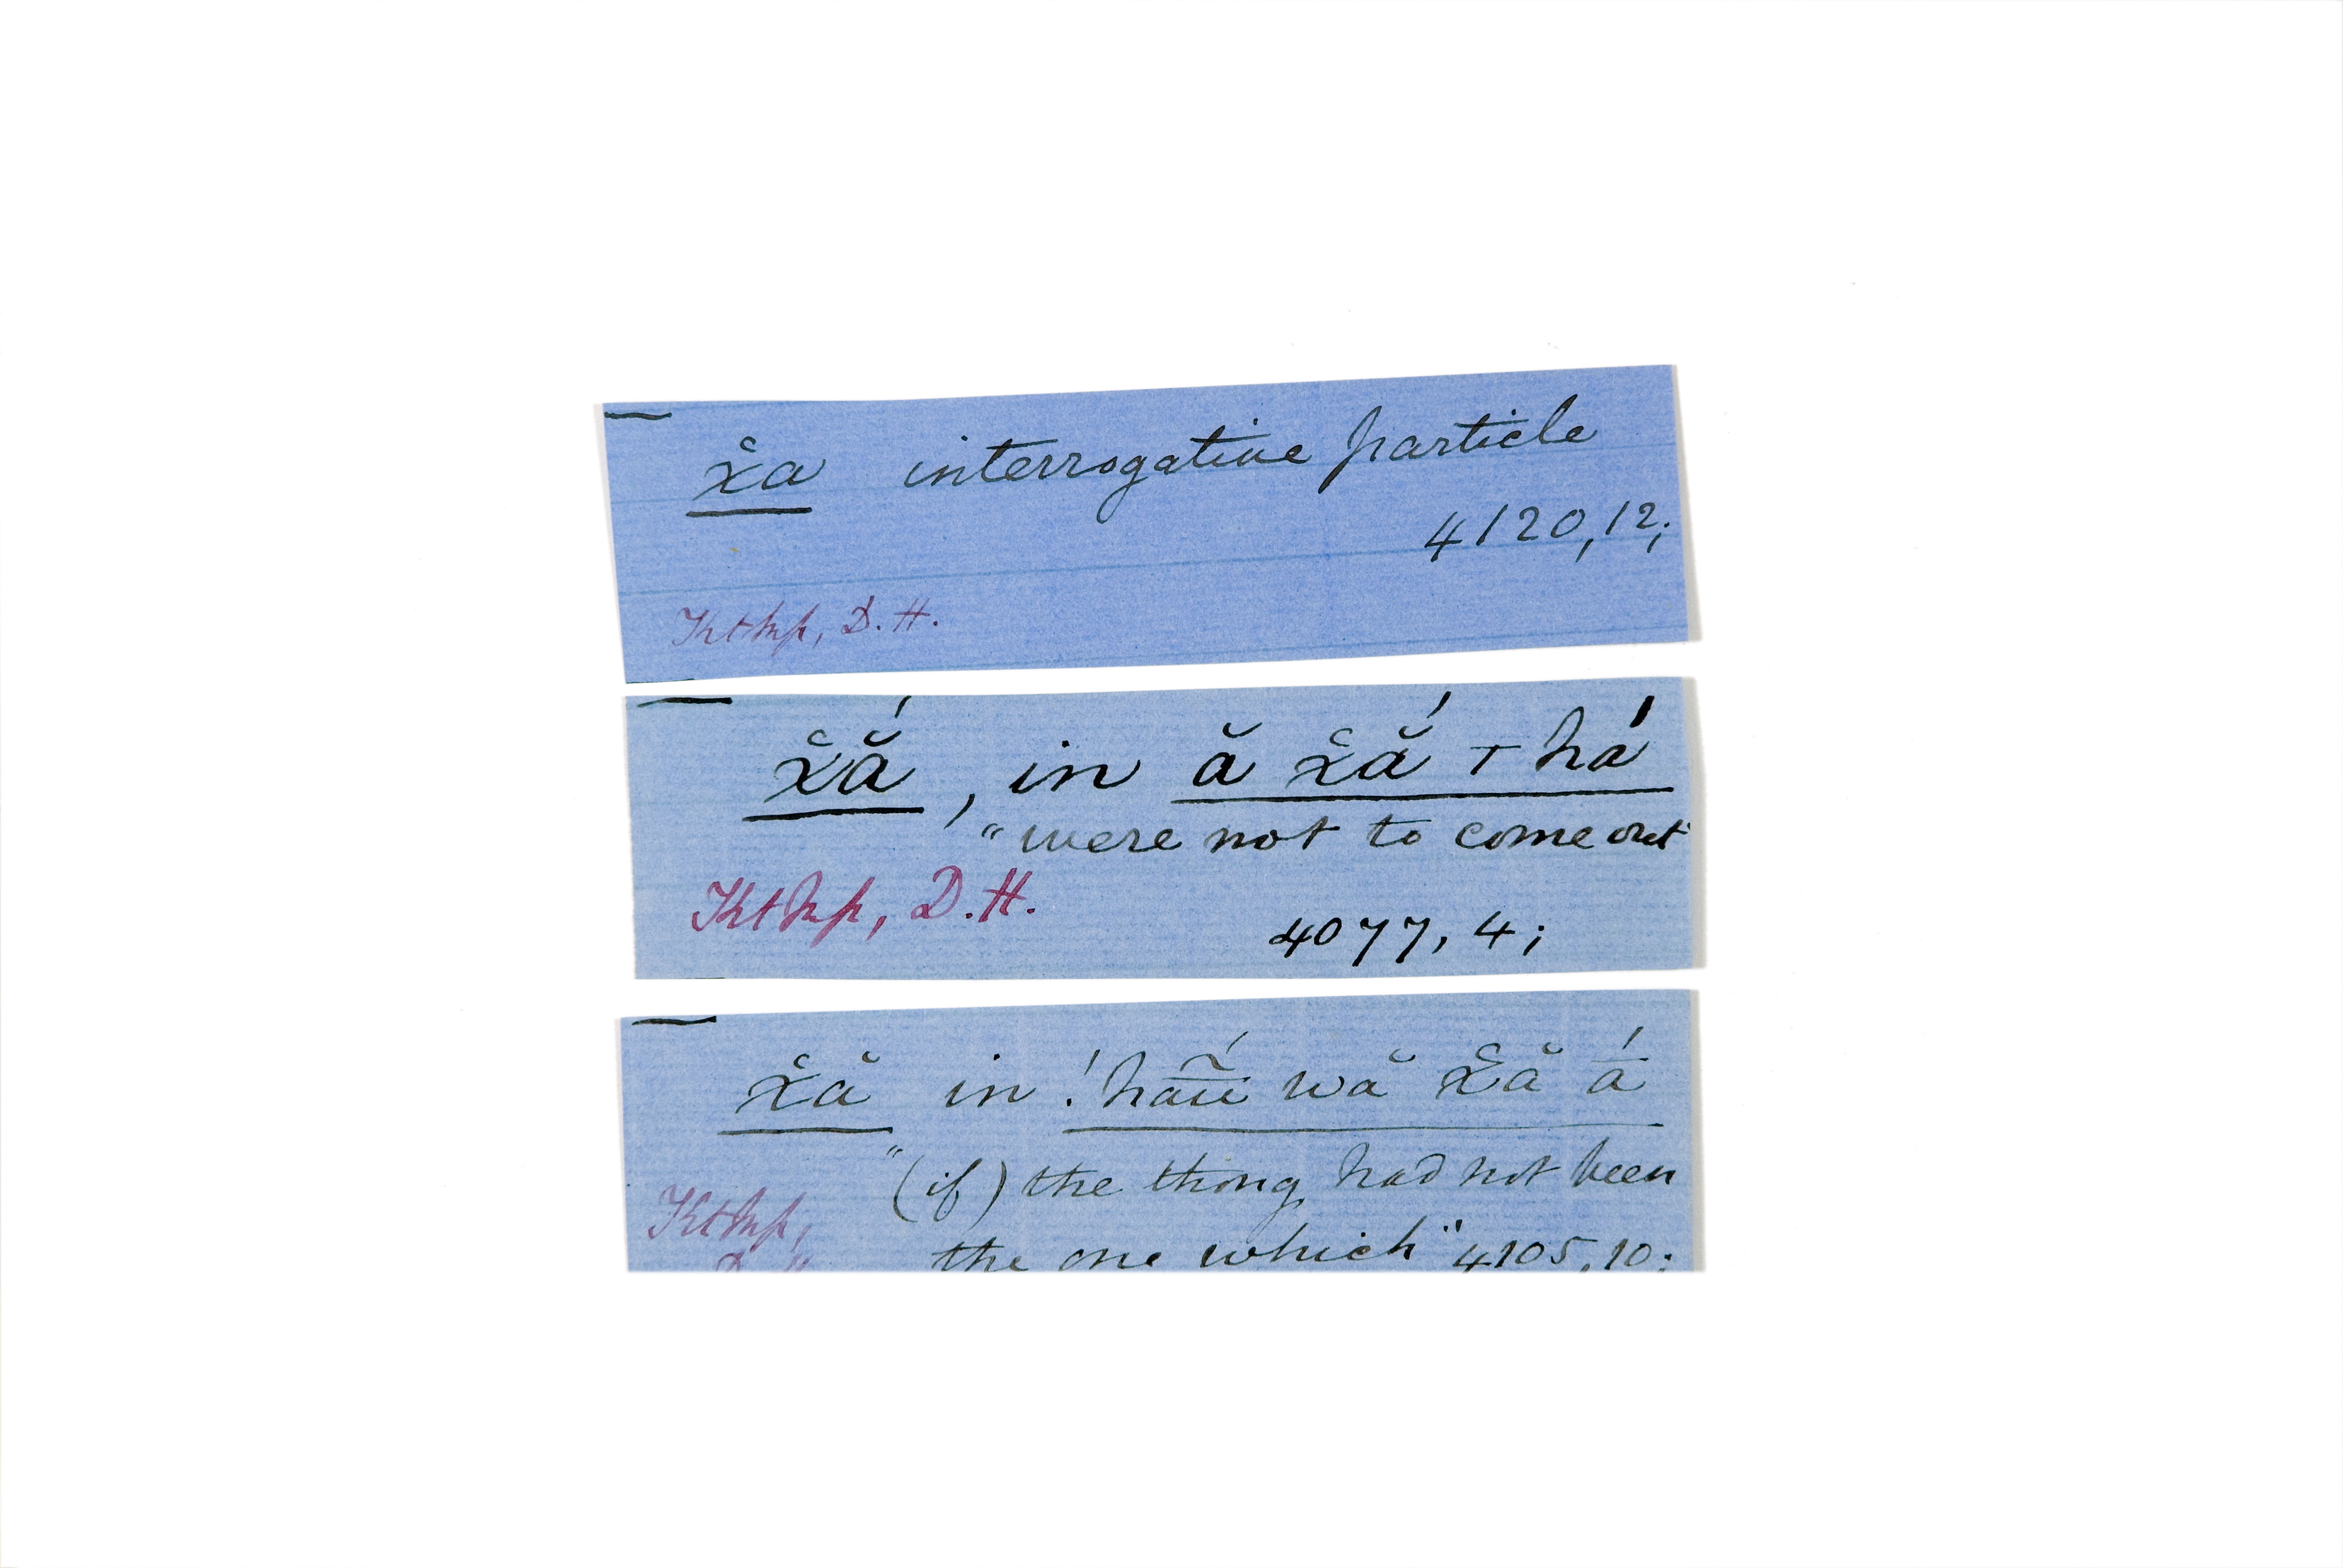 x̌a interrogative particle
4120,12;
Kthp, D.H.
x̌ắ, in ă x̌ắ ⊤há
"were not to come out"
Kthp, D.H.
4077, 4;
x̌ă in !hau̅̃́ wă x̌ă ā́
"(if) the thing had not been
Kthp,
the one which" 4105,10;
D.H.